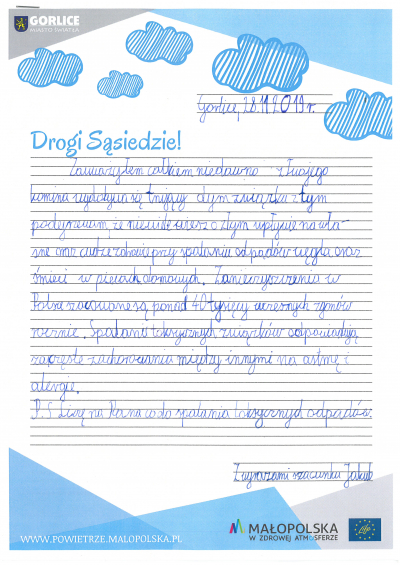 GORLICE
MIASTO ŚWIATŁA
Gorlice, 28.11.2019 r.
Drogi Sąsiedzie!
Zauważyłem całkiem niedawno z Twojego
komina wydobywa się trujący dym związku z tym
podejrzewam, że nie wiesz o złym wpływie na
oraz zdrowie przy spalaniu odpadów węgla oraz
śmieci w piecach domowych. Zanieczyszczenia w
Polsce są ponad 40 tysięcy zgonów
rocznie. Spalanie toksycznych związków odpowiadają
za częste zachorowania między innymi na astmę i
alergie.
P.S Liczę na co do spalania toksycznych odpadów.
Z wyrazami szacunku Jakub
WWW.POWIETRZE.MALOPOLSKA.PL
MAŁOPOLSKA
W ZDROWEJ ATMOSFERZE